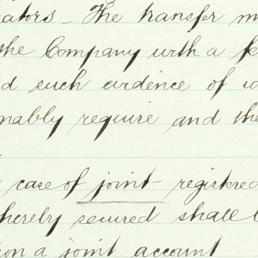 ators. The transfer m
the Company with a fe
d such evidence of id
nably require and the
case of joint registered
hereby secured shall b
on a joint account